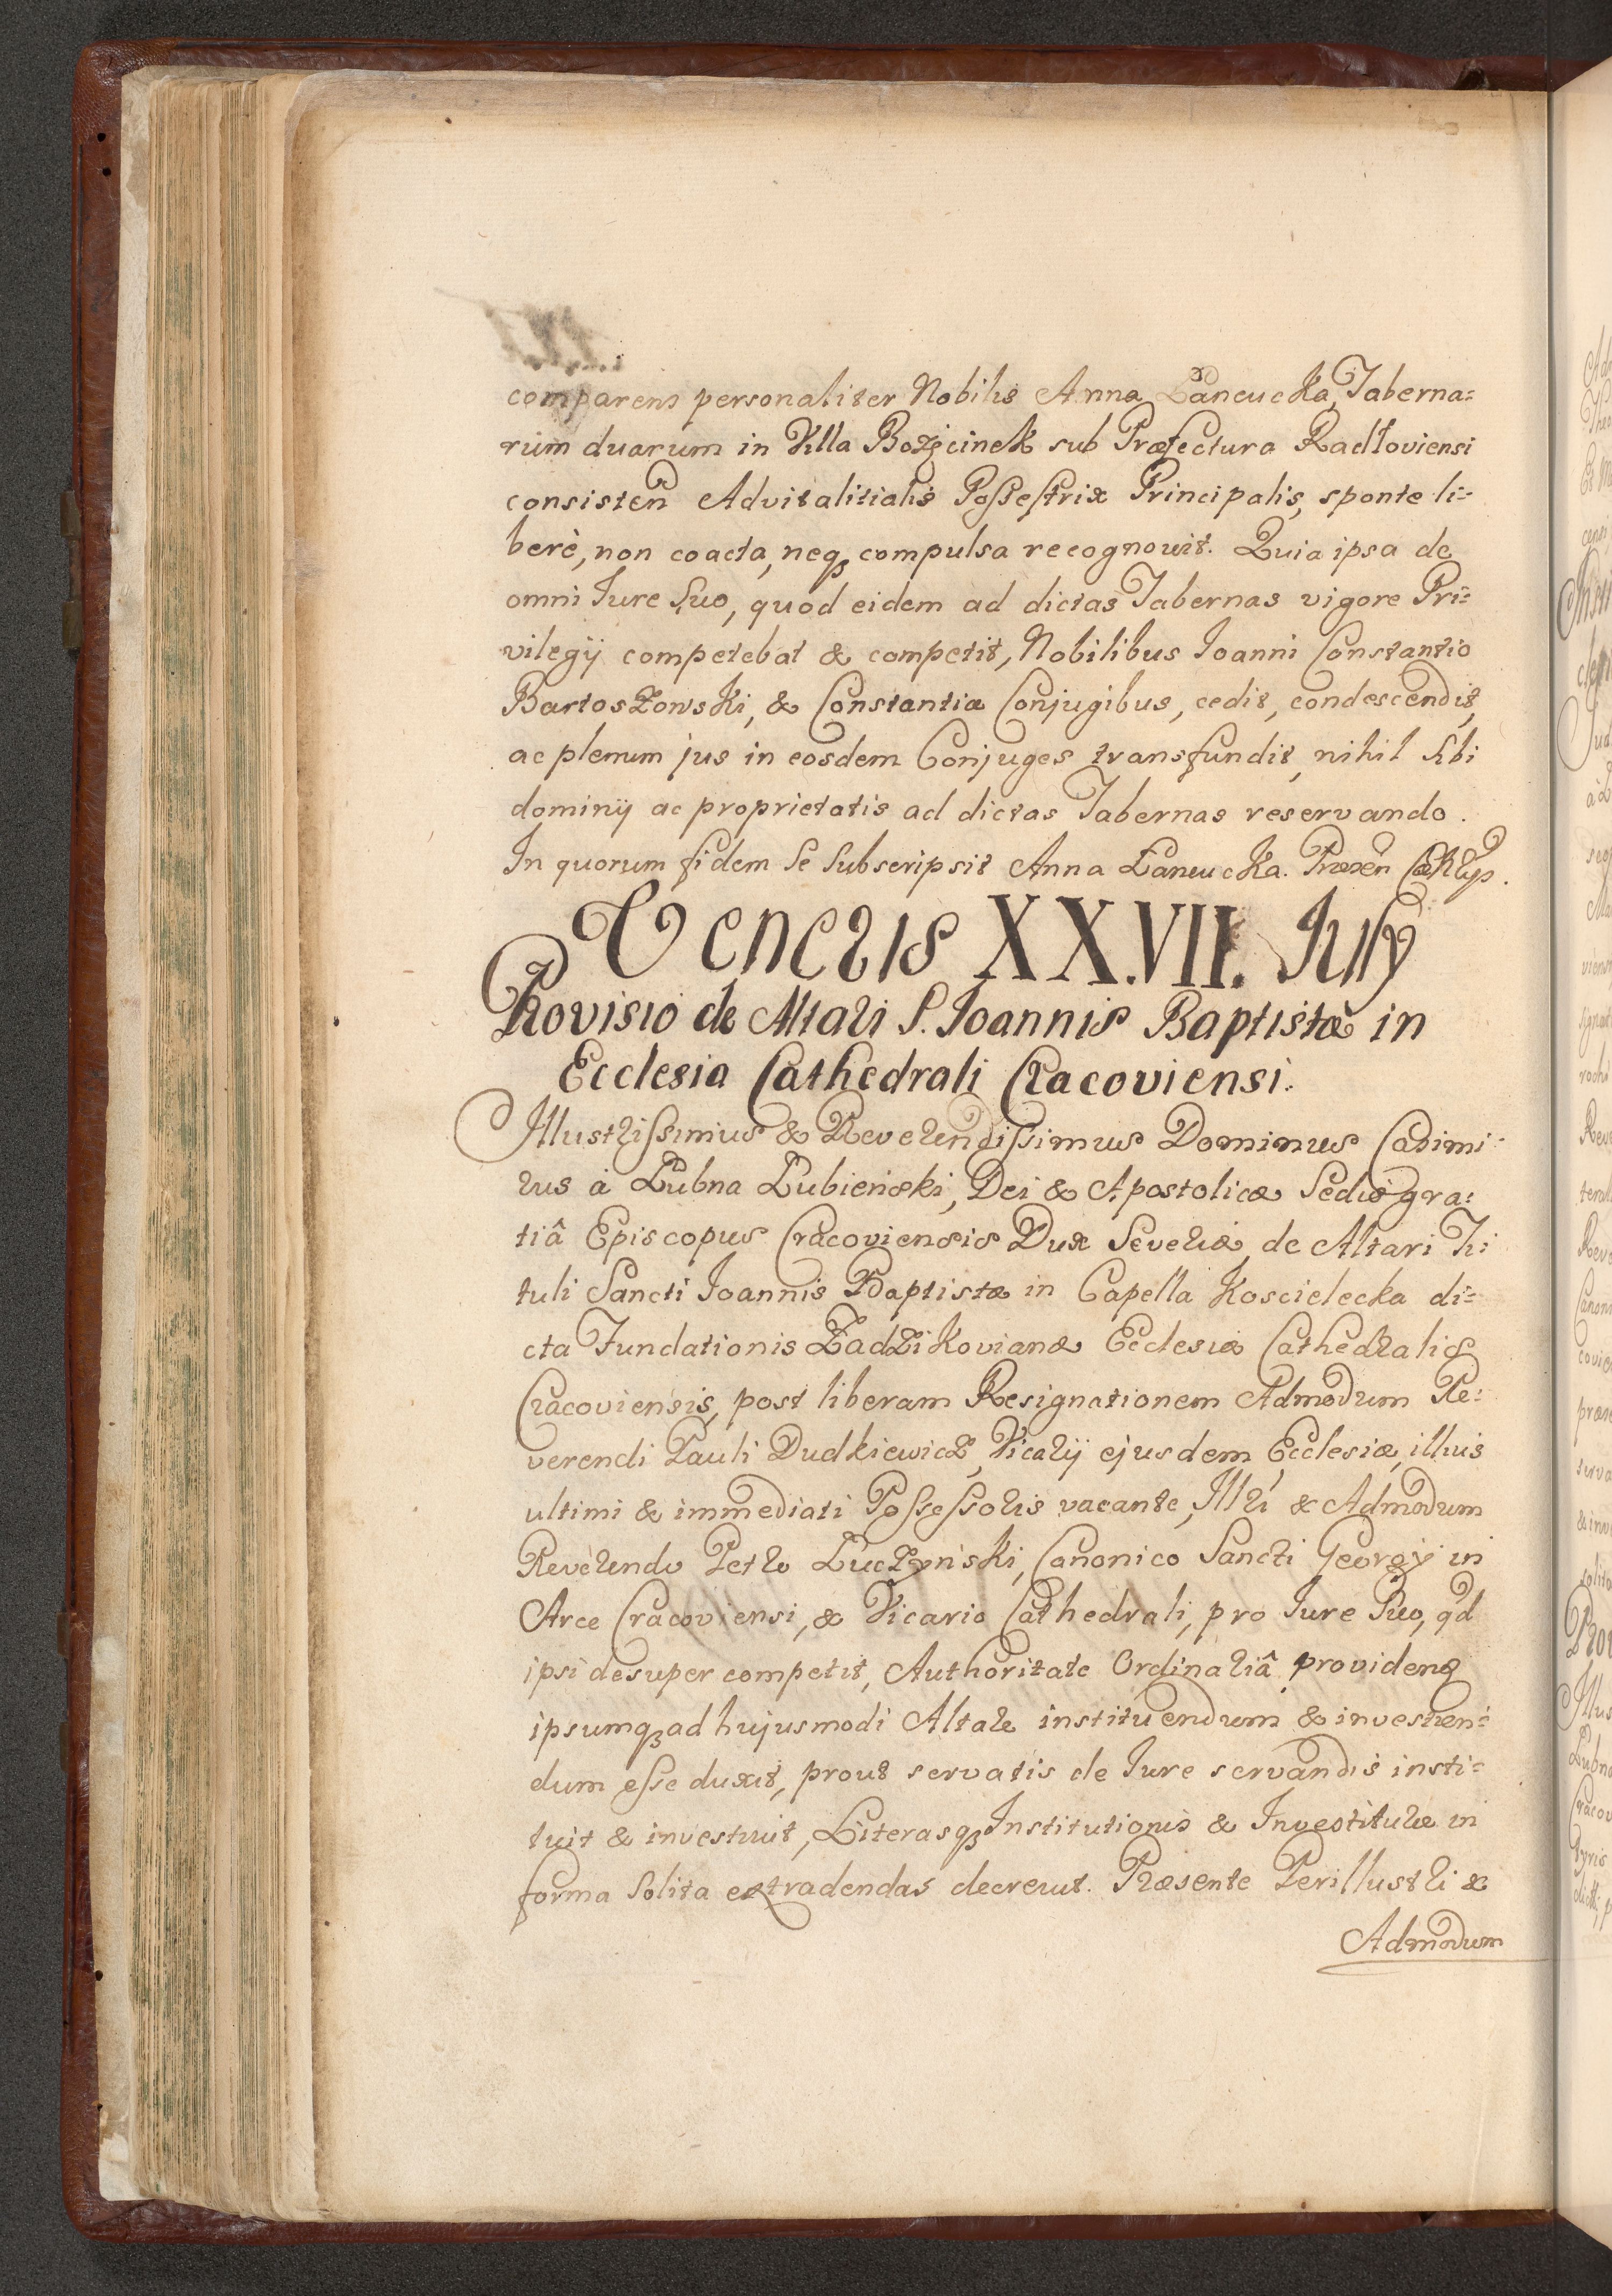 comparens personaliter Nobilis Anna Łancucka, Taberna=
rum duarum in Villa Bozęcinek sub Præfectura Radłoviensi
consisteñ Advitalitialis Possestrix Principalis, sponte li=
berè, non coacta, neqꝫ compulsa recognovit. Quia ipsa de
omni Iure Suo, quod eidem ad dictas Tabernas vigore Pri=
vilegÿ competebat & competit, Nobilibus Ioanni Constantio
Bartoszowski, & Constantiæ Conjugibus, cedit, condescendit,
ac plenum jus in eosdem Conjuges transfundit, nihil Sibi
dominÿ ac proprietatis ad dictas Tabernas reservando.
In quorum fidem Se Subscripsit Anna Łancucka. Præsen
Veneris XX.VII. Iulÿ
Provisio de Altari S. Ioannis Baptistæ in
Ecclesia Cathedrali Cracoviensi.
Illustrissimus & Reverendissimus Dominus Casimi=
rus à Łubna Łubieński, Dei & Apostolicæ Sedis gra=
tiâ Episcopus Cracoviensis Dux Severiæ, de Altari Ti
tuli Sancti Ioannis Baptistæ in Capella Koscielecka di=
cta Fundationis Zadzikovianæ Ecclesiæ Cathedralis
Cracoviensis, post liberam Resignationem Admodum Re=
verendi Pauli Dudkiewicz, Vicarÿ ejusdem Ecclesiæ, illius
ultimi & immediati Possessoris vacante, Illri & Admodum
Reverendo Petro Łuczynski, Canonico Sancti Georgÿ in
Arce Cracoviensi, & Vicario Cathedrali, pro Iure Suo, qd
ipsi desuper competit, Authoritate Ordinariâ providens
ipsumqꝫ ad hujusmodi Altare instituendum & investien=
dum esse duxit, prout servatis de Iure servandis insti=
tuit & investivit, Literasqꝫ Institutionis & Investituræ in
forma Solita extradendas decrevit. Præsente Perillustri &
Admodum